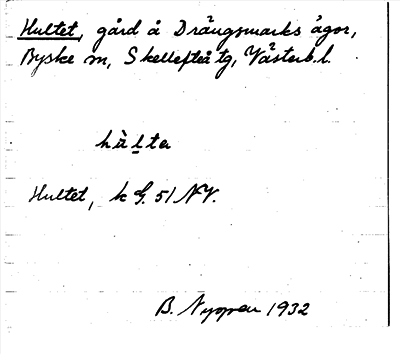 Hultet, gård å Drängsmarks ägor,
Byske sn, Skellefteå tg, Västerb. l.
hàlta
Hultet, k G. 51 NV.
B. Nyman 1932